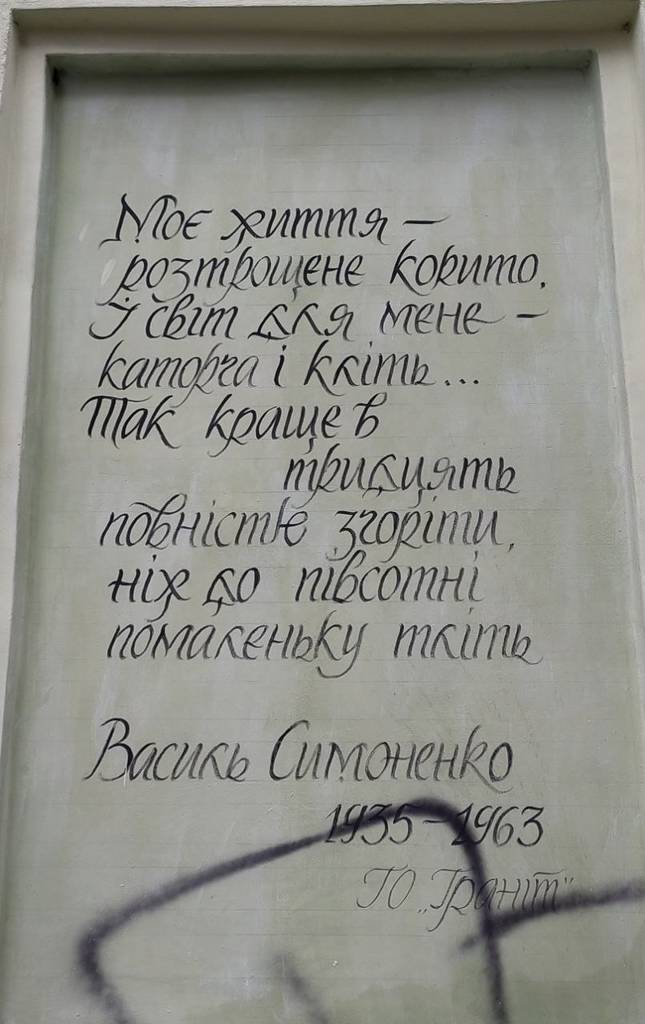 Моє життя –
розтрощене корито.
І світ для мене –
каторга і кліть...
Так краще в
тридцять
повністю згоріти,
ніж до півсотні
помаленьку тліть
Василь Симоненко
1935–1963
ГО „Граніт"